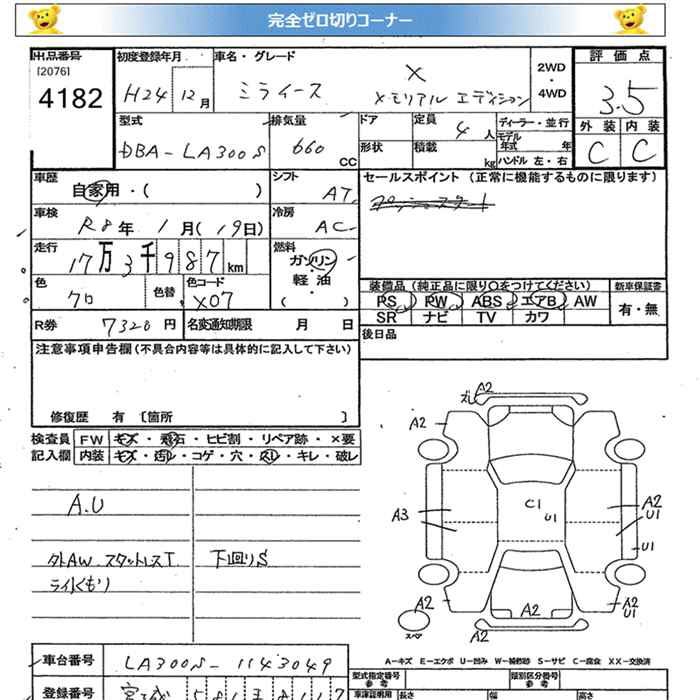 完全ゼロ切りコーナー
出品番号 初度登録年月 車名・グレード 2WD・4WD 評価点
[2076]
4182 H24 12月 ミライース X メモリアル エディション 3.5
型式 排気量 ドア 定員 4人 ディーラー・並行 外装 内装
DBA-LA300S 660 CC 形状 積載 kg モデル年式 年 C C
ハンドル 左・右
車歴 シフト セールスポイント (正常に機能するものに限ります)
自家用・( ) AT
車検 冷房
R8年 1月(19日) AC
走行 燃料
17万3千987km ガソリン・軽油・( )
色 色替 色コード 装備品(純正品に限り○をつけてください) 新車保証書
クロ X07 PS PW ABS エアB AW 有・無
SR ナビ TV カワ
R券 7320円 名変通知期限 月 日 後日品
注意事項申告欄(不具合内容等は具体的に記入して下さい)
修復歴 有 〔箇所 〕
検査員 FW キズ・飛石・ヒビ割・リペア跡・×要
記入欄 内装 キズ・汚レ・コゲ・穴・スレ・キレ・破レ
A.U
外AW スタットレスT 下回りS
ライトくもり
ズレ A2
A2
A3 C1 U1 A2 U1
U1
A2 A2 A2 U1
スペア A2
A-キズ E-エクボ U-凹み W-補修跡 S-サビ C-腐食 XX-交換済
車台番号 LA300S-1143049
型式指定番号 参考 類別区分番号 参考
登録番号 宮城 581
車庫証明用 長さ 幅 高さ